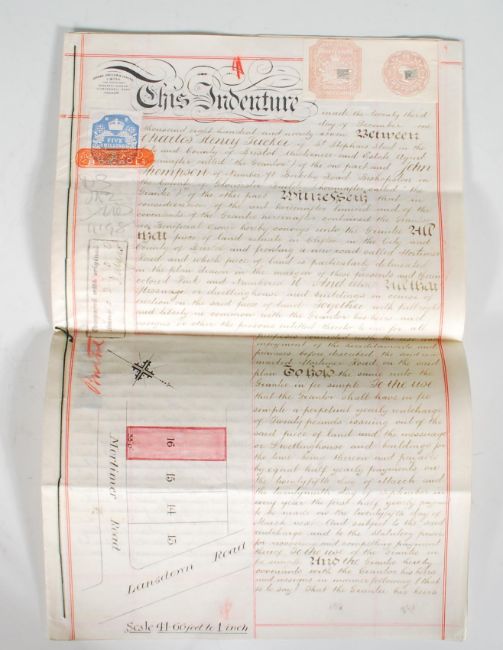 This Indenture
made the twenty third
day of December one
thousand eight hundred and ninety seven Between
Charles Henry Tucker of St Stephens Street in the
City and County of Bristol Auctioneer and Estate Agent
(hereinafter called "the Grantor") of the one part and John
Thompson of Number 91 Road Bishopston in
the County of Gloucester (hereinafter called "the
Grantee") of the other part Witnesseth that in
consideration of the rent hereinafter limited and of the
covenants of the Grantee hereinafter contained the Grantor
as Beneficial Owner hereby conveys unto the Grantee All
that piece of land situate at Clifton in the City and
County of Bristol and fronting a new road called Mortimer
Road and which piece of land is particularly delineated
in the plan drawn in the margin of these presents and therein
colored Pink and Numbered 16 And also All that
Messuage or dwellinghouse and buildings in course of
erection on the said piece of land Together with full right
and liberty in common with the Grantor his heirs and
assigns or other the persons entitled thereto for all
enjoyment of the hereditaments and
premises before described the said
Mortimer Road on the said
plan To hold the same unto the
Grantee in fee simple To the use
that the Grantor shall have in fee
simple a perpetual yearly rentcharge
of Twenty pounds issuing out of the
said piece of land and the messuage
or dwellinghouse and buildings for
the time being thereon and payable
by equal half yearly payments on
the twentyfifth day of March and
the twentyninth day of September in
every year the first half yearly payment
to be made on the twentyfifth day of
March next And subject to the said
rentcharge and to the statutory powers
for recovering and compelling payment
thereof To the use of the Grantee in
fee simple And the Grantee hereby
covenants with the Grantor his heirs
and assigns in manner following (that
is to say) That the Grantee his heirs
FIVE
SHILLINGS
16
15
14
13
Mortimer Road
Lansdown Road
Scale 41·66 feet to 1 inch